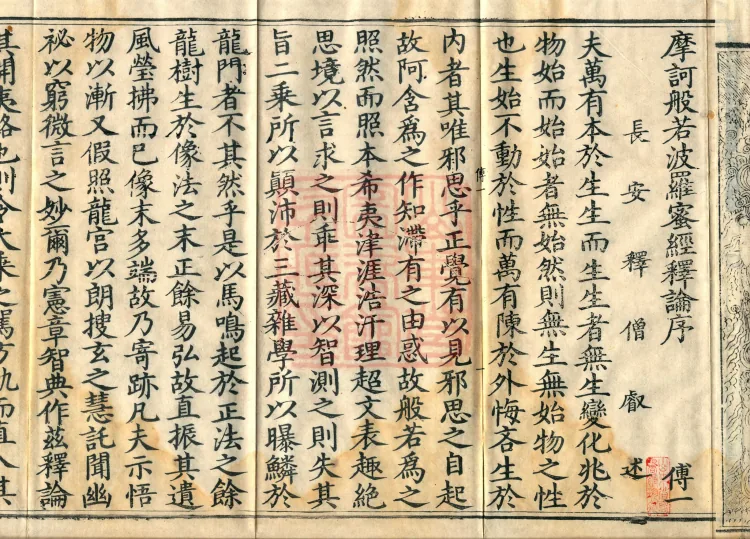 摩訶般若波羅蜜經釋論序 傅一
長安釋僧叡述
夫萬有本於生生而生生者無生變化兆於
物始而始始者無始然則無生無始物之性
也生始不動於性而萬有陳於外悔吝生於
傅一
內者其唯邪思乎正覺有以見邪思之自起
故阿含爲之作知滯有之由惑故般若爲之
照然而照本希夷津涯浩汗理超文表趣絕
思境以言求之則乖其深以智測之則失其
旨二乘所以顚沛於三藏雜學所以曝鱗於
龍門者不其然乎是以馬鳴起於正法之餘
龍樹生於像法之末正餘易弘故直振其遺
風瑩拂而已像末多端故乃寄跡凡夫示悟
物以漸又假照龍宮以朗搜玄之慧託聞幽
祕以窮微言之妙爾乃憲章智典作茲釋論
其開夷路也則令大乘之駕方軌而直入其